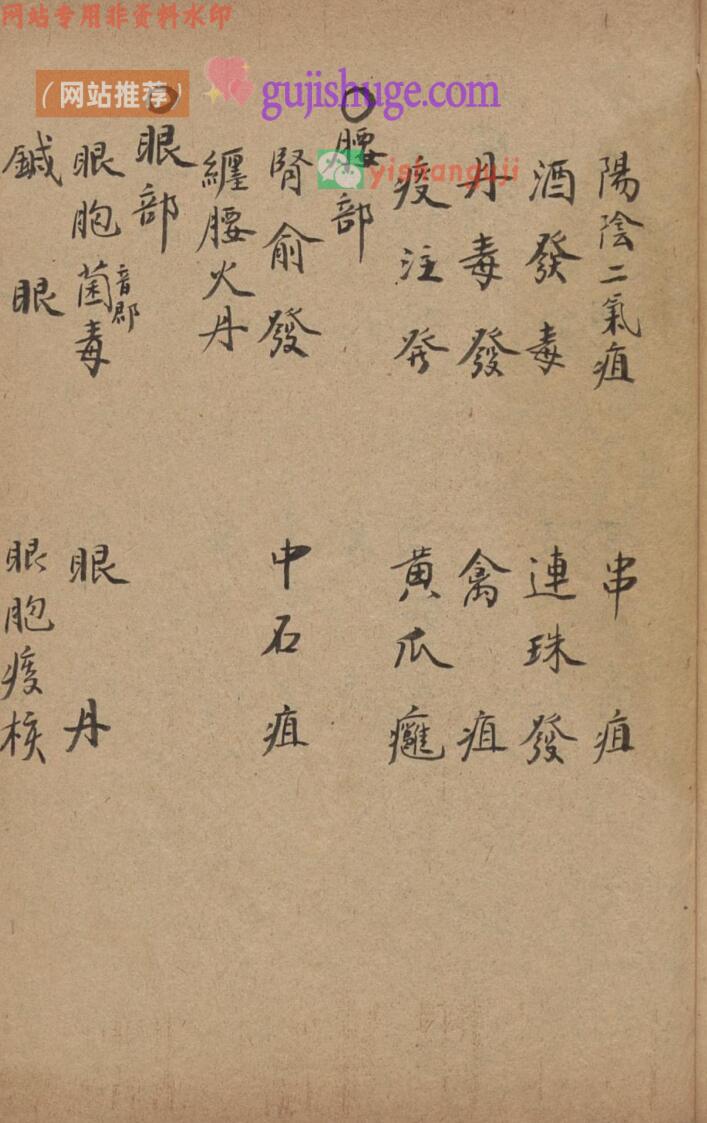 网站专用非资料水印
（网站推荐）
gujishuge.com
yishanguji
陽陰二氣疽　串疽
酒發毒　連珠發
丹毒發　禽疽
痰注發　黄瓜癰
○腰部
腎俞發　中石疽
纏腰火丹
○眼部
眼胞菌音郡毒　眼丹
鍼眼　眼胞痰核